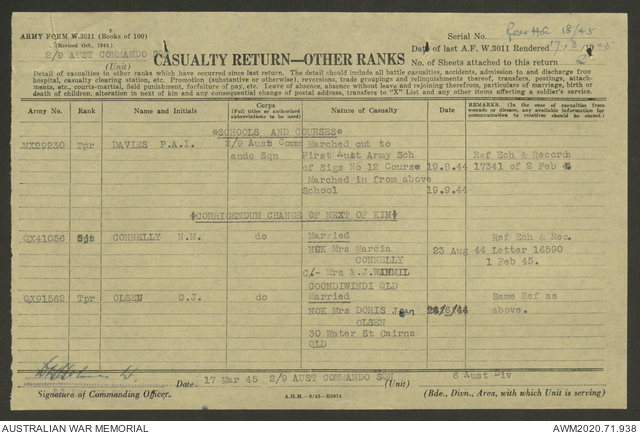 ARMY FORM W.3011 (Books of 100)
(Revised Oct., 1943.)
Serial No. Rear H.Q. 18/45
2/9 AUST COMMANDO SQN
(Unit)
CASUALTY RETURN—OTHER RANKS
Date of last A.F. W.3011 Rendered
No. of Sheets attached to this return
Detail of casualties to other ranks which have occurred since last return. The detail should include all battle casualties, accidents, admission to and discharge from
hospital, casualty clearing station, etc. Promotion (substantive or otherwise), reversions, trade groupings and relinquishments thereof, transfers, postings, attach-
ments, etc., courts-martial, field punishment, forfeiture of pay, etc. Leave of absence, absence without leave and rejoining therefrom, particulars of marriage, birth or
death of children, alteration in next of kin and any consequential change of postal address, transfers to "X" List and any other items affecting a soldier's service.
Army No. Rank Name and Initials Corps (Full titles or authorised abbreviations to be used) Nature of Casualty Date of Casualty REMARKS. (In the case of casualties from wounds or disease, any available information for communication to relatives should be stated.)
*SCHOOLS AND COURSES*
NX29230 Tpr DAVIES P.A.I. 2/9 Aust Comm Marched out to
ando Sqn First Aust Army Sch Ref Ech & Records
of Sigs No 12 Course 19.8.44 17341 of 2 Feb 45
Marched in from above
School 19.9.44
*CORRIGENDUM CHANGE OF NEXT OF KIN*
QX41056 CONNELLY N.N. do Married Ref Ech & Rec.
NOK Mrs Marcia 23 Aug 44 Letter 16590
CONNELLY 1 Feb 45.
C/- Mrs A.J.WINMIL
GOONDIWINDI QLD
QX91562 Tpr OLSEN C.J. do Married Same Ref as
NOK Mrs DORIS Jean 24/6/44 above.
OLSEN
30 Water St Cairns
QLD
Signature of Commanding Officer.
Date 17 Mar 45 2/9 AUST COMMANDO SQN (Unit) 6 Aust Div
(Bde., Divn., Area, with which Unit is serving)
A.H.M.
AUSTRALIAN WAR MEMORIAL
AWM2020.71.938